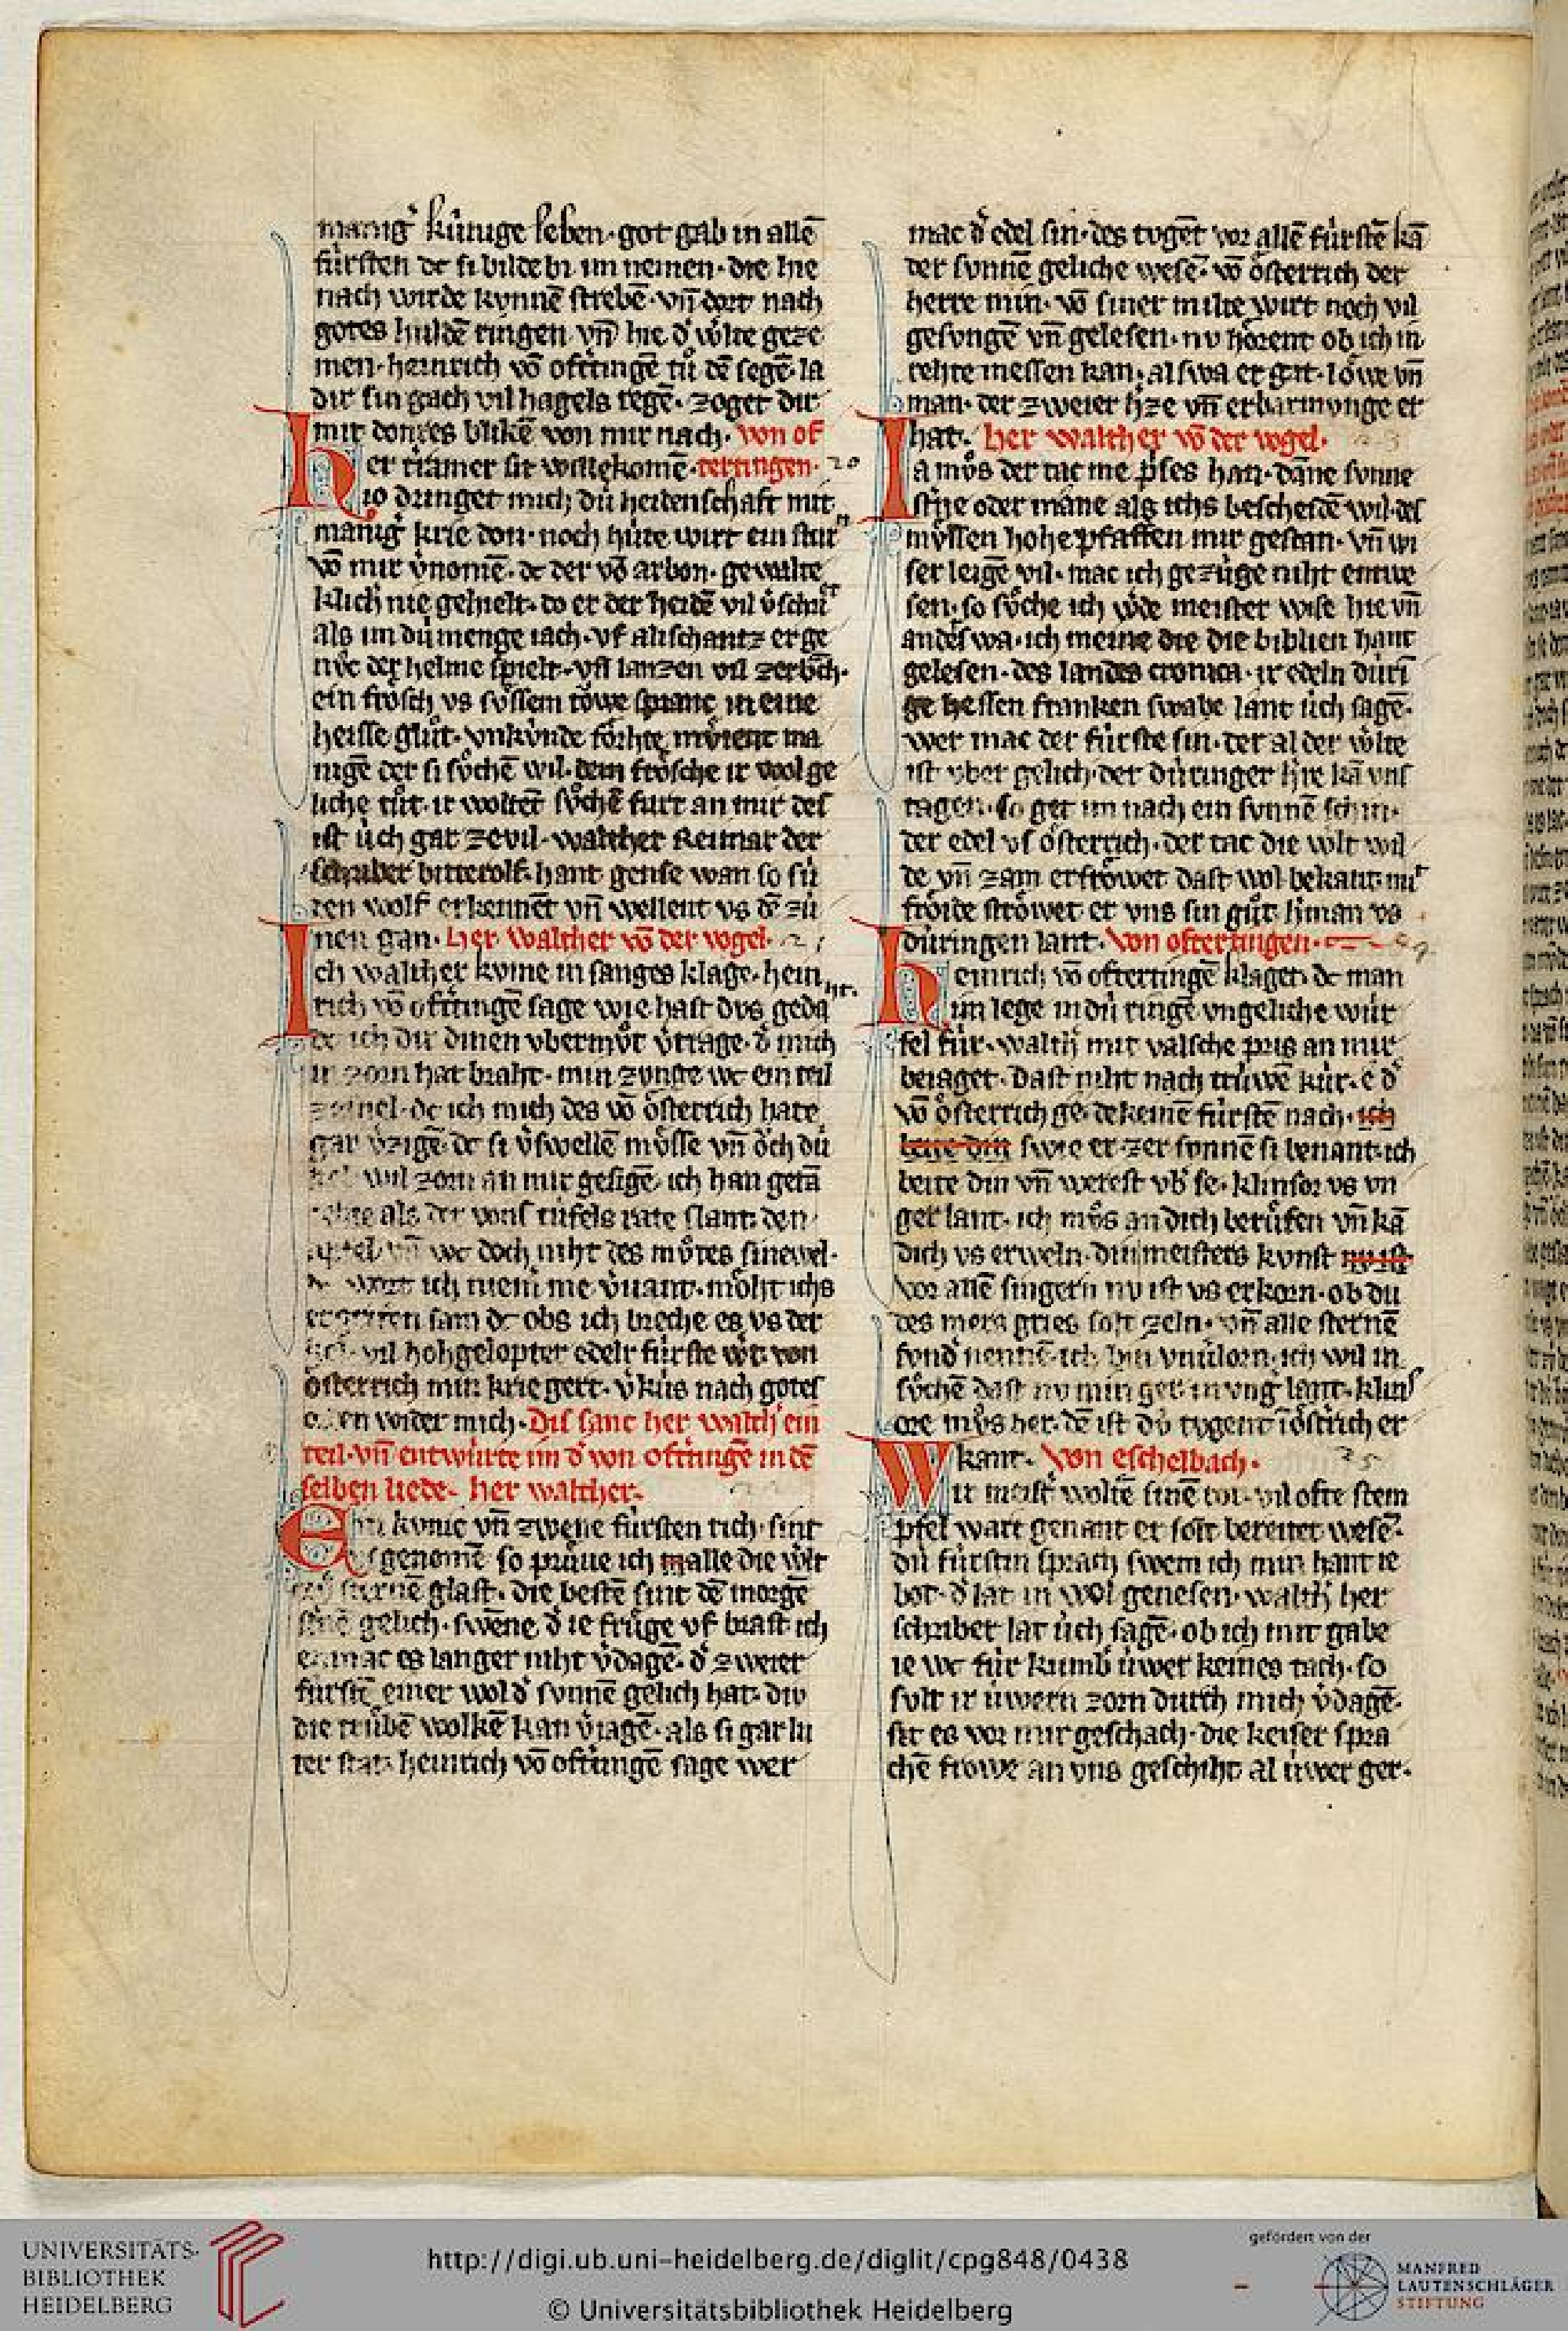 manig' kúnige leben · got gab in allē
fúrsten dc si bilde bi im nemen · die hie
nach wirde kvnnē strebē · vn̄ dort nach
gotes huldē ringen · vn̄ hie d' wͤlte geze
men · heinrich vō oft'tingē tuͦ dē segē · la
dir sin gach vil hagels regē · zoget dir
mit donres blikē von mir nach · von of
Her t'amer sit willekomē · tertingen · 20
io dringet mich dú heidenschaft mit
manig' krie don · noch húte wirt ein stur
vō mir v'nomē · dc der vō arbon · gewalte
klich nie gehielt · do er der heidē vil v'schrit
als im dú menge iach · vf alischantz er ge
nvͦc der helme spielt · vn̄ lanzen vil zerbͣch ·
ein frosch vs svͤssem tǒwe spranc in eine
heisse gluͦt · vnkúnde fǒrhte mvͤient ma
nigē der si svͦchē wil · dem frosche ir wol ge
liche tuͦt · ir woltēt svͦchē furt an mir des
ist úch gar ze vil · walther Reimar der
schriber bitterolf · hant gense wan so sú
den wolf erkennēt vn̄ wellent vs dē zú
nen gan · her walther vō der vogel · 21
Ich walther kvme in sanges klage · hein
rich vō oft'tingē sage wie hast dvs gedaht ·
dc ich dir dinen vbermvͦt v'trage · d' mich
in zorn hat braht · min zvnge wc ein teil
ze snel · dc ich mich des vō ǒsterrich hate
gar v'zigē · dc si v'swellē mvͤsse vn̄ ǒch dú
kel · wil zorn an mir gesigē · ich han getā
rehte als der vons túfels rate slant · den
apfel · vn̄ wc doch niht des mvͦtes sinewel ·
wort ich niem' me v'uant · mǒht ichs
ergriffen sam dc obs ich breche es vs der
kel · vil hohgelopter edelr fúrste wͤt · von
ǒsterrich min krie gert · v'kús nach gotes
eren wider mich · Dis sanc her walth' ein
teil · vn̄ entwúrte im d' von oft'tingē in dē
selben liede · her walther ·
Ein kvnic vn̄ zwene fúrsten rich · sint
vs genomē so prúue ich malle die wͤlt
sternē glast · die bestē sint dē morgē
stnē gelich · swēne d' ie frúge vf brast · ich
enmac es langer niht v'dagē · d' zweier
fúrstē einer wol d' svnnē gelich hat · div
die trúbē wolkē kan v'iagē · als si gar lu
ter stat · heinrich vō oft'tingē sage wer
mac d' edel sin · des tvgēt vor allē fúrstē kā
der svnnē geliche wesē · vō ǒsterrich der
herre min · vō siner milte wirt noch vil
gesvngē vn̄ gelesen · nv hǒrent ob ich in
rehte messen kan · al swa er git · lǒwe vn̄
man · der zweier h'ze vn̄ erbarmvnge er
hat · her walther vō der vogel · 23
Ia mvͦs der tac me pͥses han · dāne svnne
st'ne oder mane als ichs bescheidē wil · des
mvͤssen hohe pfaffen mir gestan · vn̄ wi
ser leigē vil · mac ich gezúge niht entwe
sen · so svͦche ich v'de meister wise hie vn̄
anders wa · ich meine die die biblien hant
gelesen · des landes cronica · ir edeln dúri
ge hessen franken swabe lant úch sagē ·
wer mac der fúrste sin · der al der wͤlte
ist vber gelich · der dúringer h're kā vns
tagen · so get im nach ein svnnē schin ·
der edel vs ǒsterrich · der tac die wͤlt wil
de vn̄ zam erfrǒwet dast wol bekant · mit
frǒide strǒwet er vns sin guͦt · h'man vs
dúringen lant · Von oftertingen · 24
Heinrich vō oftertingē klaget · dc man
im lege in dú ringē vngeliche wúr
fel fúr · walth' mit valsche pris an mir
beiaget · dast niht nach trúwē kúr · e d'
vō ǒsterrich ge · dekeinē fúrstē nach · ich
beite din swie er zer svnnē si benant · ich
beite din vn̄ werest vb' se · klinsor vs vn
gerlant · ich mvͦs an dich berúfen vn̄ kā
dich vs erweln · din meisters kvnst nv ist
vor allē singern nv ist vs erkorn · ob du
des mers gries solt zeln · vn̄ alle sternē
svnd' nennē · ich bin vnúlorn · ich wil in
svͦchē dast nv min ger · in vng'lant · klins
ore mvͦs her · dē ist dú tvgent ī ǒst'rich er
kant · Von eschelbach · 25
Wir meist' woltē sinē tot · vil ofte stem
pfel wart genant er solt bereitet wesē ·
dú fúrstin sprach swem ich min hant ie
bot · d' lat in wol genesen · walth' her
schriber lat úch sagē · ob ich mit gabe
ie wc fúr kumb' úwer keines tach · so
svlt ir úwern zorn durch mich v'dagē ·
sit es vor mir geschach · die keiser spra
chē frowe an vns geschiht al úwer ger ·
UNIVERSITÄTS-
BIBLIOTHEK
HEIDELBERG
http://digi.ub.uni-heidelberg.de/diglit/cpg848/0438
© Universitätsbibliothek Heidelberg
gefördert von der
MANFRED
LAUTENSCHLÄGER
STIFTUNG